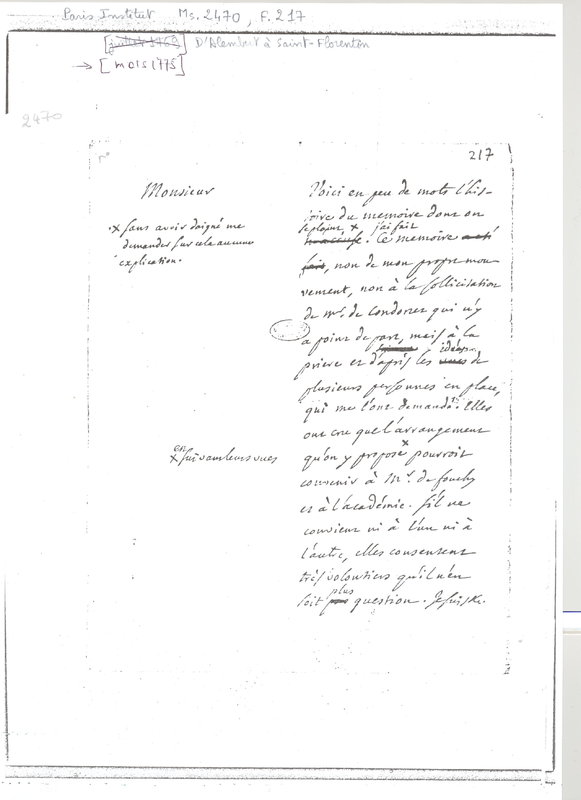 Paris Institut Ms. 2470, F. 217
[juillet 1768] D'Alembert à Saint-Florentin
→ [mois 1775]
2470
217
Monsieur
x sans avoir daigné me
demander sur cela aucune
explication.
Voici en peu de mots l'his-
toire du memoire dont on
se plaint, x j'ai fait
ce memoire
fait, non de mon propre mou-
vement, non à la sollicitation
de Mr. de Condorcet qui n'y
a point de part, mais à la
priere et d'après les idées de
plusieurs personnes en place,
qui me l'ont demandé. Elles
ont cru que l'arrangement
qu'on y propose x pourroit
x en suivant leurs vues
convenir à Mr. de fouchy
et à l'académie. s'il ne
convient ni à l'un ni à
l'autre, elles consentent
très volontiers qu'il n'en
soit plus question. Je suis &c.